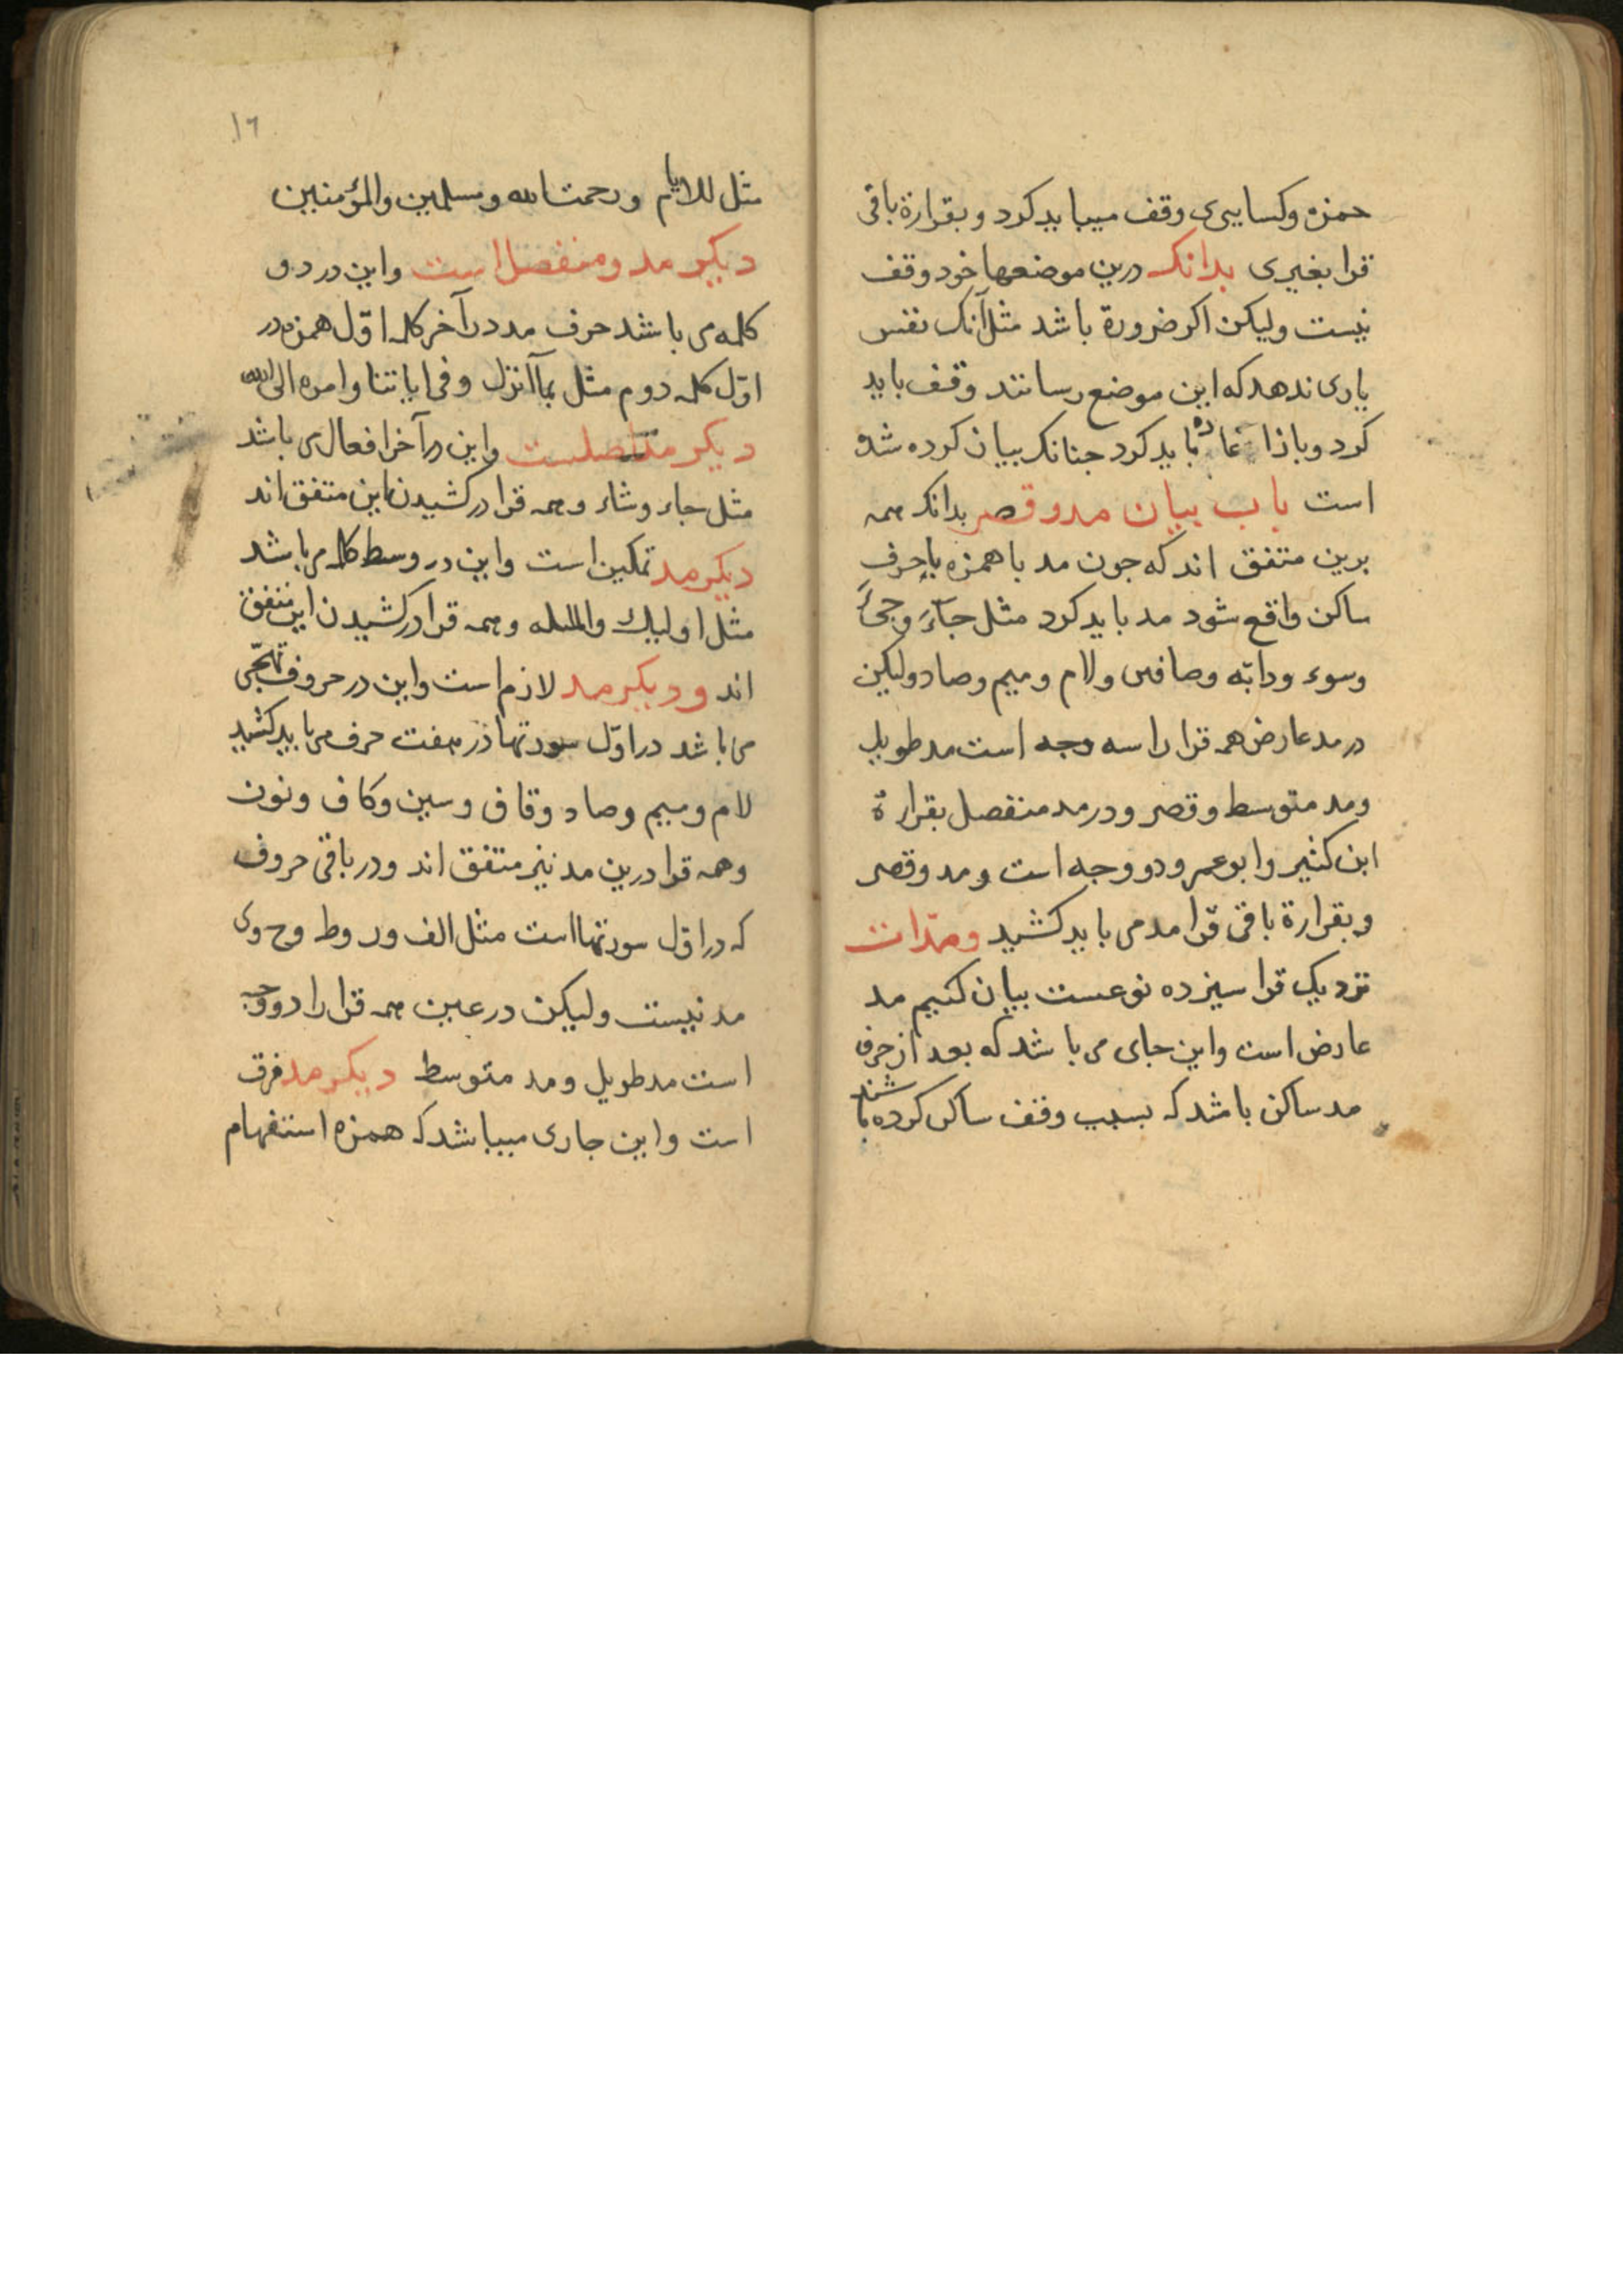 حمزه وكسايىى وقف ميبايدكرد و بقراءة باقى
قرا بغيرى بدانك درين موضعها خود وقف
نيست وليكن اكر ضرورة باشد مثل آنك نفس
يارى ندهد كه اين موضع رسانند وقف بايد
كرد و باز اعاده بايد كرد جنانك بيان كرده شده
است باب بيان مد و قصر بدانك همه
برين متفق اند كه جون مد با همزه يا حرف
ساكن واقع شود مد بايد كرد مثل جآءَ وجىءَ
وسوء ودابّه وصافى ولام وميم وصاد وليكن
در مد عارض همه قرا را سه وجه است مد طويل
ومد متوسط و قصر و در مد منفصل بقراءة
ابن كثير وابو عمرو دو وجه است و مد و قصر
و بقراءة باقى قرا مد مى بايد كشيد ومدّات
نزديك قرا سيزده نوعست بيان كنيم مد
عارض است واين جاى مى باشد كه بعد از حرف
مد ساكن باشد كه بسبب وقف ساكن كرده باشند
١٦
مثل للايام ورحمت الله ومسلمين والمؤمنين
ديكر مد ومنفصل است واين در دو
كلمه مى باشد حرف مد در آخر كلمه اوّل همزه در
اوّل كلمه دوم مثل بمآ انزل وفى اياتنا وامره الى الله
ديكر مد متصلست واين در آخر افعال مى باشد
مثل جاء وشاء وهمه قرا در كشيدن اين متفق اند
ديكر مد تمكين است واين در وسط كلمه مى باشد
مثل اوليك والمليله وهمه قرا در كشيدن اين متفق
اند و ديكر مد لازم است واين در حروف تهجّى
مى باشد در اوّل سورتها در هفت حرف مى بايد كشيد
لام وميم وصاد وقاف وسين وكاف ونون
وهمه قرا درين مد نيز متفق اند ودر باقى حروف
كه در اوّل سورتها است مثل الف ور وط وح وى
مد نيست وليكن در عين همه قرا را دو وجه
است مد طويل ومد متوسط ديكر مد فرق
است واين جارى ميباشد كه همزه استفهام